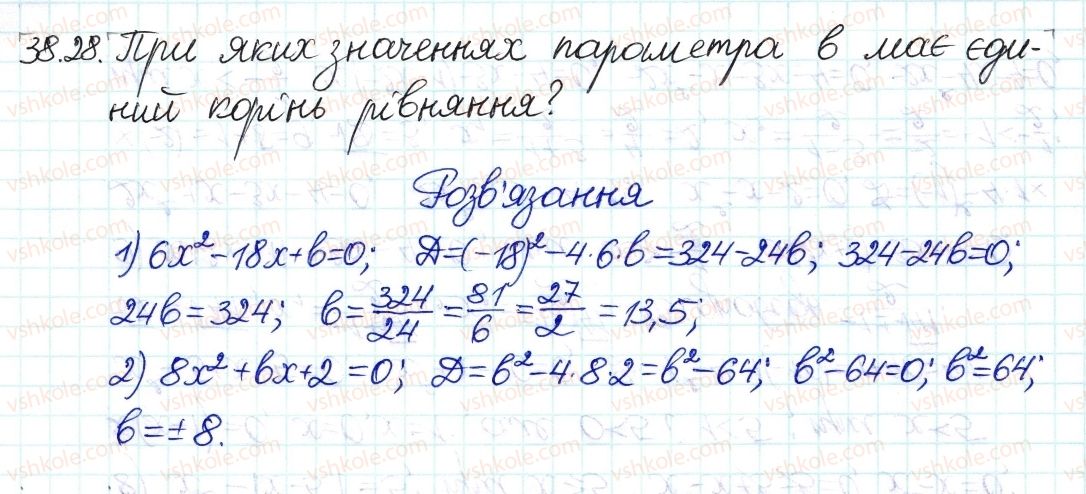 38.28. При яких значеннях параметра b має єди-
ний корінь рівняння?
Розв'язання
1) 6x² - 18x + b = 0; Д = (-18)² - 4·6·b = 324 - 24b; 324 - 24b = 0;
24b = 324; b = 324/24 = 81/6 = 27/2 = 13,5;
2) 8x² + bx + 2 = 0; Д = b² - 4·8·2 = b² - 64; b² - 64 = 0; b² = 64;
b = ± 8.